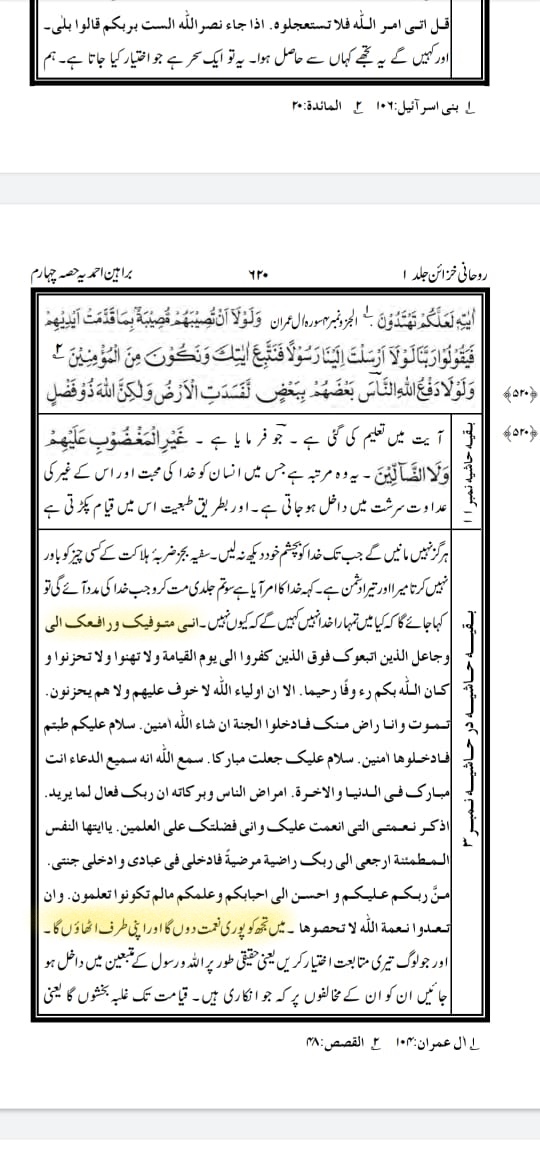 قل اتٰی امر اللّٰہ فلا تستعجلوہ. اذا جاء نصر اللّٰہ الست بربکم قالوا بلٰی۔
اور کہیں گے یہ تجھے کہاں سے حاصل ہوا۔ یہ تو ایک سحر ہے جو اختیار کیا جاتا ہے۔ ہم
۱؂ بنی اسرآئیل:۱۰۶ ۲؂ المائدة:۲۰
روحانی خزائن جلد ۱ ۶۲۰ براہین احمدیہ حصہ چہارم
اٰيٰتِهٖ لَعَلَّكُمْ تَهْتَدُوْنَ ۱؂. الجزو نمبر۴ سورہ اٰل عمران وَلَوْلَاۤ اَنْ تُصِيْبَهُمْ مُّصِيْبَةٌۢ بِمَا قَدَّمَتْ اَيْدِيْهِمْ
فَيَقُوْلُوْا رَبَّنَا لَوْلَاۤ اَرْسَلْتَ اِلَيْنَا رَسُوْلًا فَنَتَّبِعَ اٰيٰتِكَ وَنَكُوْنَ مِنَ الْمُؤْمِنِيْنَ ۲؂
وَلَوْلَا دَفْعُ اللّٰهِ النَّاسَ بَعْضَهُمْ بِبَعْضٍ لَّفَسَدَتِ الْاَرْضُ وَلٰكِنَّ اللّٰهَ ذُوْ فَضْلٍ
﴿۵۲۰﴾
﴿۵۲۰﴾
بقیہ حاشیہ نمبر ۱۱
آیت میں تعلیم کی گئی ہے۔ جو فرمایا ہے۔ غَيْرِ الْمَغْضُوْبِ عَلَيْهِمْ
وَلَا الضَّآلِّيْنَ۔ یہ وہ مرتبہ ہے جس میں انسان کو خدا کی محبت اور اس کے غیر کی
عداوت سرشت میں داخل ہو جاتی ہے۔ اور بطریق طبیعت اس میں قیام پکڑتی ہے
بقیہ حاشیہ در حاشیہ نمبر ۳
ہرگز نہیں مانیں گے جب تک خدا کو بچشم خود دیکھ نہ لیں۔ سفیہ بجز ضربۂ ہلاکت کے کسی چیز کو باور
نہیں کرتا میرا اور تیرا دشمن ہے۔ کہہ خدا کا امر آیا ہے سو تم جلدی مت کرو جب خدا کی مدد آئے گی تو
کہا جائے گا کہ کیا میں تمہارا خدا نہیں کہیں گے کہ کیوں نہیں۔ انی متوفیک ورافعک الی
وجاعل الذین اتبعوک فوق الذین کفروا الی یوم القیامة ولا تهنوا ولا تحزنوا و
کان اللّٰہ بکم رء وفًا رحیما. الا ان اولیاء اللّٰہ لا خوف علیهم ولا هم یحزنون.
تموت وانا راض منک فادخلوا الجنة ان شاء اللّٰہ اٰمنین. سلام علیکم طبتم
فادخلوها اٰمنین. سلام علیک جعلت مبارکا. سمع اللّٰہ انه سمیع الدعاء انت
مبارک فی الدنیا والاٰخرة. امراض الناس وبرکاته ان ربک فعال لما یرید.
اذکر نعمتی التی انعمت علیک وانی فضلتک علی العٰلمین. یاایتها النفس
المطمئنة ارجعی الی ربک راضیة مرضیةً فادخلی فی عبادی وادخلی جنتی.
منَّ ربکم علیکم و احسن الی احبابکم وعلمکم مالم تکونوا تعلمون. وان
تعدوا نعمة اللّٰہ لا تحصوها۔ میں تجھ کو پوری نعمت دوں گا اور اپنی طرف اٹھاؤں گا۔
اور جو لوگ تیری متابعت اختیار کریں یعنی حقیقی طور پر اللہ و رسول کے متبعین میں داخل ہو
جائیں ان کو ان کے مخالفوں پر کہ جو انکاری ہیں۔ قیامت تک غلبہ بخشوں گا یعنی
۱؂ اٰل عمران:۱۰۴ ۲؂ القصص:۴۸